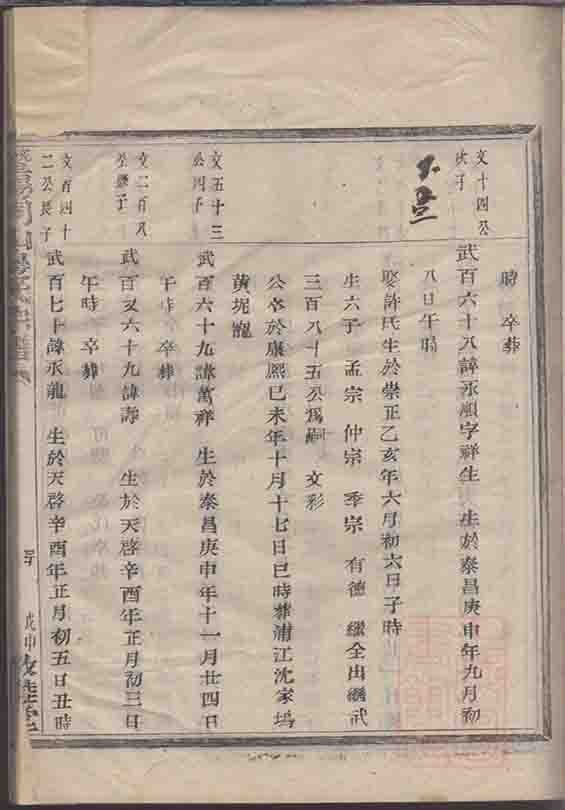 時 卒 葬
文十四公
次子
武百六十八諱永順字祥生 生於泰昌庚申年九月初
八日午時
娶許氏生於崇正乙亥年六月初六日子時
生六子 孟宗 仲宗 季宗 有德 繼全出繼武
三百八十五公為嗣 文彩
公卒於康熙巳未年十月十七日巳時葬浦江沈家塢
黄坭壠
文五十三
公四子
武百六十九諱萬祥 生於泰昌庚申年十一月廿四日
午時 卒 葬
文二百八
公 子
武百又六十九諱壽 生於天啓辛酉年正月初三日
午時 卒 葬
文百四十
二公長子
武百七十諱永龍 生於天啓辛酉年正月初五日丑時
戊申